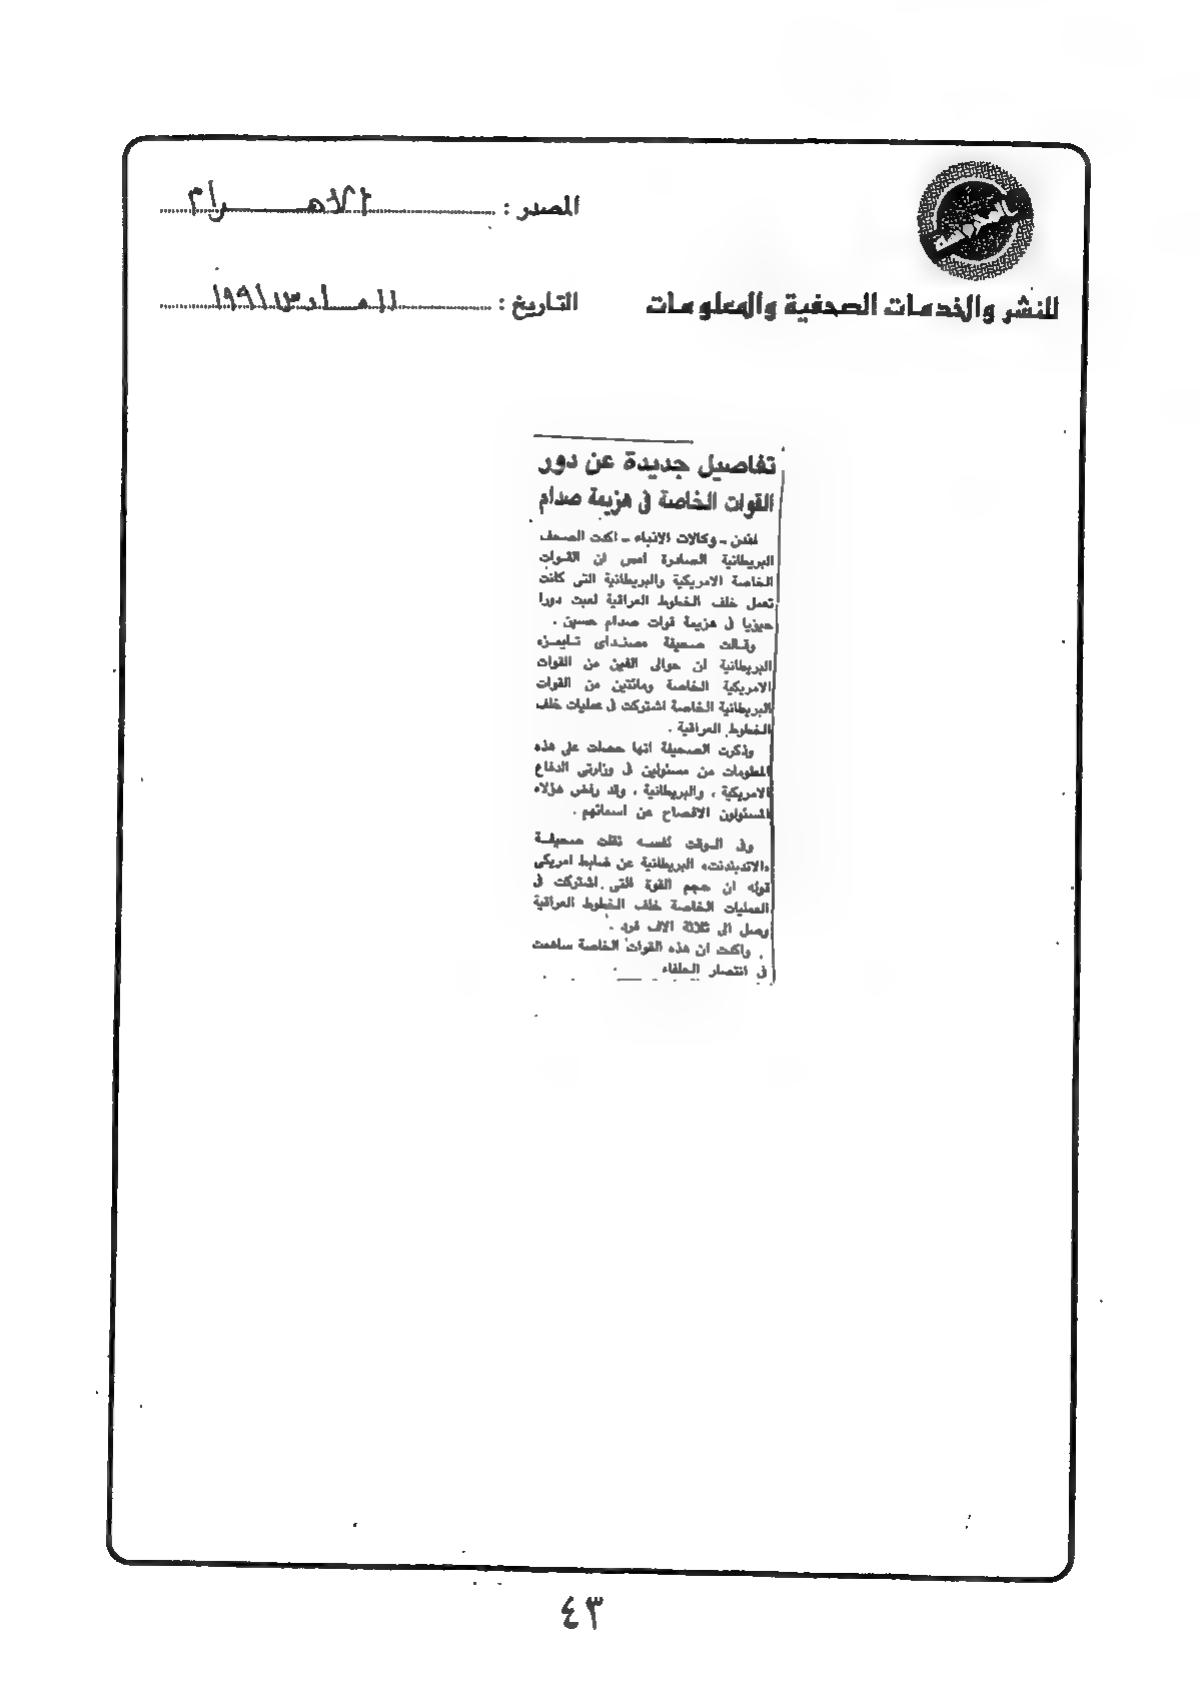 المصدر : الاهرام
للنشر والخدمات الصحفية والمعلومات
التاريخ : ١١ مارس ١٩٩١
تفاصيل جديدة عن دور
القوات الخاصة فى هزيمة صدام
لندن ـ وكالات الانباء ـ اكدت الصحف
البريطانية الصادرة امس ان القوات
الخاصة الامريكية والبريطانية التى كانت
تعمل خلف الخطوط العراقية لعبت دورا
حيويا فى هزيمة قوات صدام حسين .
وقالت صحيفة «صنداى تايمز»
البريطانية ان حوالى الفين من القوات
الامريكية الخاصة ومائتين من القوات
البريطانية الخاصة اشتركت فى عمليات خلف
الخطوط العراقية .
وذكرت الصحيفة انها حصلت على هذه
المعلومات من مسئولين فى وزارتى الدفاع
الامريكية ، والبريطانية ، وقد رفض هؤلاء
المسئولون الافصاح عن اسمائهم .
وفى الوقت نفسه نقلت صحيفة
«الاندبندنت» البريطانية عن ضابط امريكى
قوله ان حجم القوة التى اشتركت فى
العمليات الخاصة خلف الخطوط العراقية
وصل الى ثلاثة الاف فرد .
واكدت ان هذه القوات الخاصة ساهمت
فى انتصار الحلفاء
٤٣